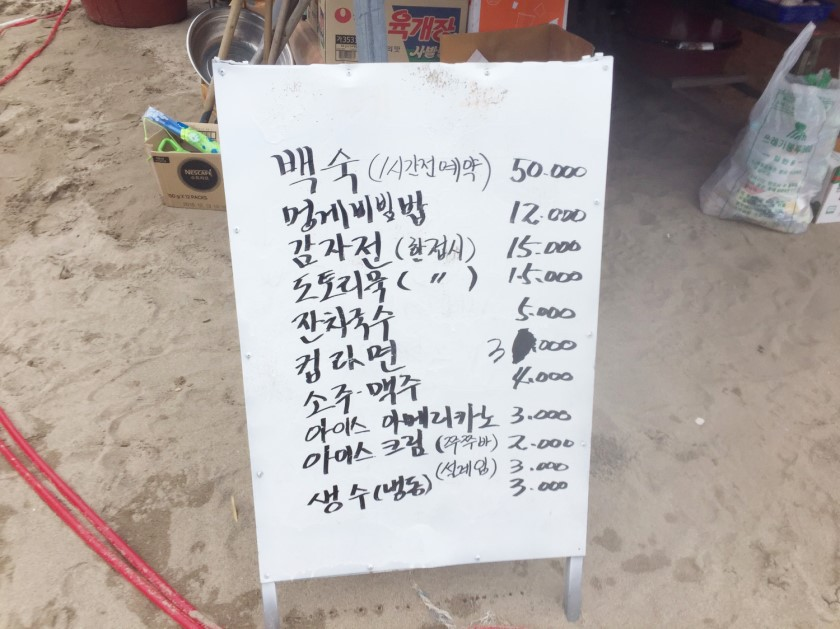 육개장
사발
NESCAFÉ
백숙 (1시간전예약) 50.000
멍게비빔밥 12.000
감자전 (한접시) 15.000
도토리묵 ( 〃 ) 15.000
잔치국수 5.000
컵라면 3.000
소주·맥주 4.000
아이스 아메리카노 3.000
아이스크림 (쭈쭈바) 2.000
(설레임) 3.000
생수 (냉동) 3.000